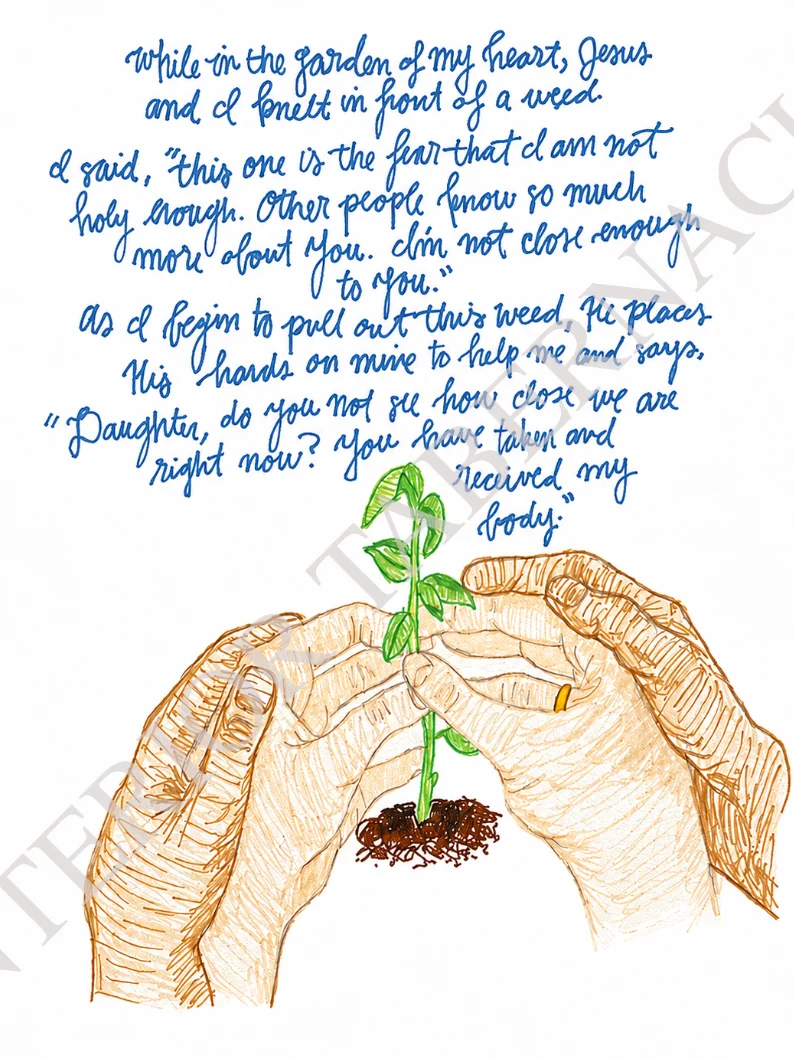 While in the garden of my heart, Jesus
and I knelt in front of a weed.
I said, "this one is the fear that I am not
holy enough. Other people know so much
more about You. I'm not close enough
to You."
As I begin to pull out this weed, He places
His hands on mine to help me and says,
"Daughter, do you not see how close we are
right now? You have taken and
received my
body."
INTERIOR TABERNACL